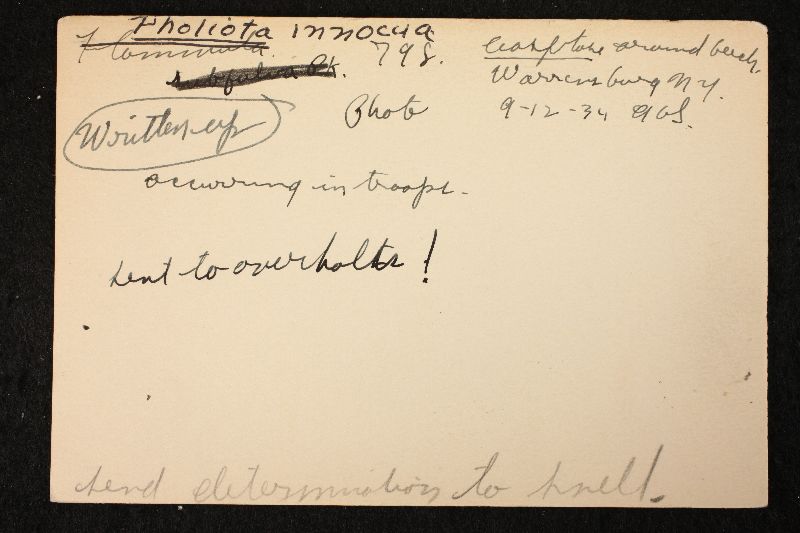 Pholiota innocua
Flammula 798.
Photo
Written up
occurring in troops.
sent to overholts!
around beech.
Warrensburg NY.
9-12-34
send determination to Snell.